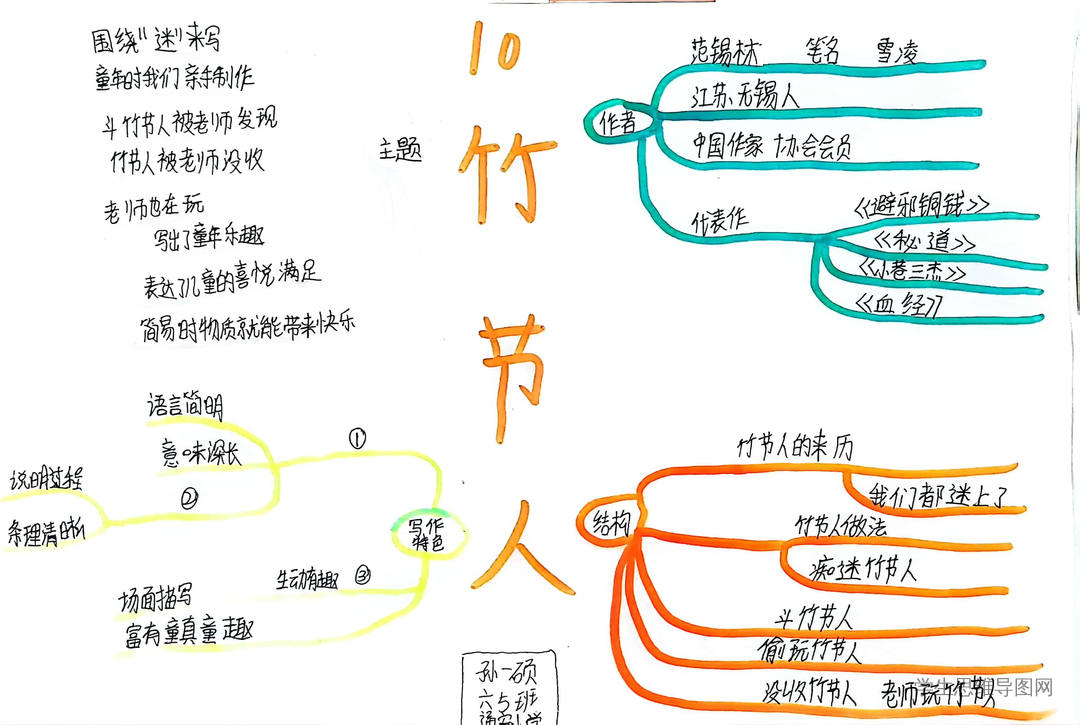 10
竹
节
人
围绕"迷"来写
童年时我们亲手制作
斗竹节人被老师发现
竹节人被老师没收
老师也在玩
写出了童年乐趣
表达了儿童的喜悦满足
简易时物质就能带来快乐
主题
作者
范锡林 笔名 雪凌
江苏无锡人
中国作家协会会员
代表作
《避邪铜钱》
《秘道》
《小巷三杰》
《血经》
写作
特色
①
语言简明
意味深长
②
说明过程
条理清晰
生动有趣 ③
场面描写
富有童真童趣
结构
竹节人的来历
我们都迷上了
竹节人做法
痴迷竹节人
斗竹节人
偷玩竹节人
没收竹节人 老师玩竹节人
孙一硕
六5班
学生思维导图网